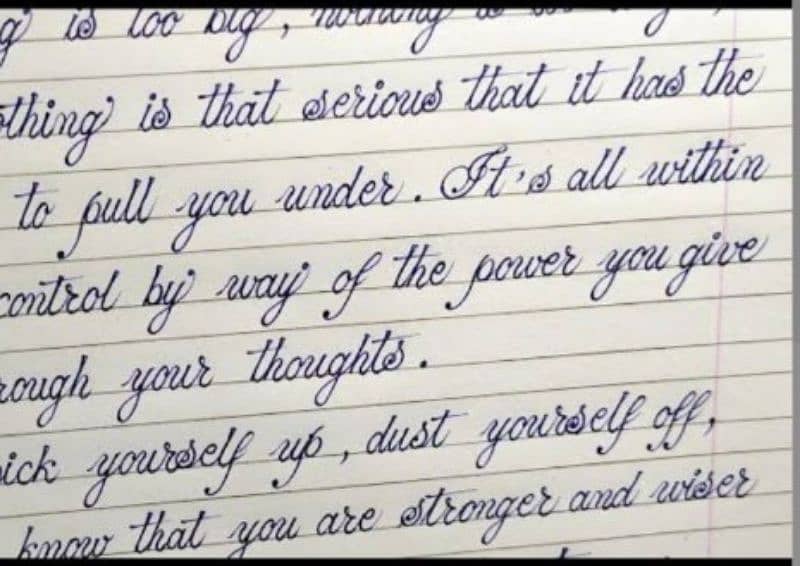 is too big, nothing
thing is that serious that it has the
to pull you under. It's all within
control by way of the power you give
rough your thoughts.
ick yourself up, dust yourself off,
know that you are stronger and wiser